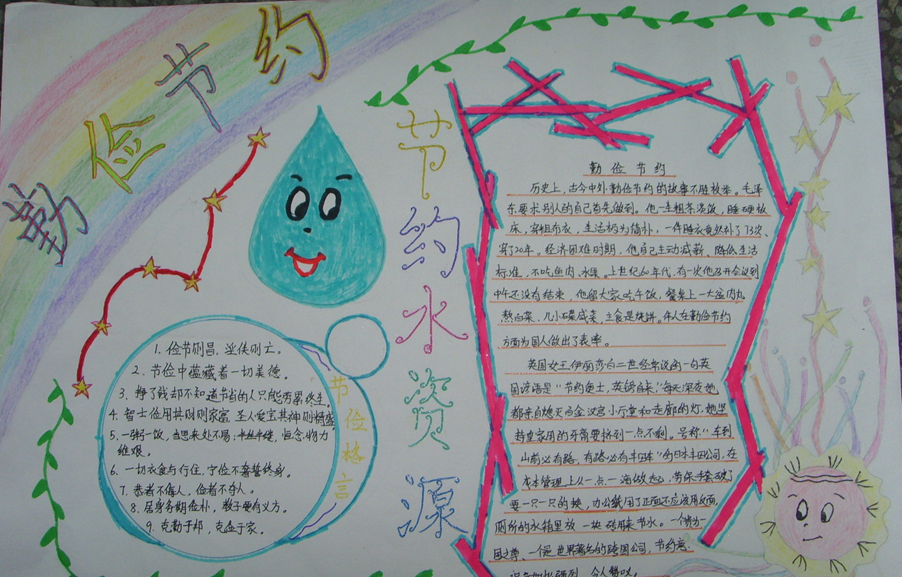 勤俭节约
节约水资源
1. 俭节则昌，淫佚则亡。
2. 节俭中蕴藏着一切美德。
3. 挣了钱却不知道节省的人只能劳累终生。
4. 智士俭用其财则家富 圣人爱宝其神则精盛。
5. 一粥一饭，当思来处不易；半丝半缕，恒念物力
维艰。
6. 一切衣食与行住，宁俭不奢誓终身。
7. 恭者不侮人，俭者不夺人。
8. 居身务期俭朴，教子要有义方。
9. 克勤于邦，克俭于家。
节俭格言
勤俭节约
历史上，古今中外勤俭节约的故事不胜枚举。毛泽
东要求别人的自己首先做到。他一生粗茶淡饭，睡硬板
床，穿粗布衣，生活极为简朴，一件睡衣竟然补了73次、
穿了20年。经济困难时期，他自己主动减薪、降低生活
标准，不吃鱼肉、水果。上世纪60年代，有一次他召开会议到
中午还没有结束，他留大家吃午饭，餐桌上一大盆肉丸
熬白菜、几小碟咸菜，主食是烧饼。
方面为国人做出了表率。
英国女王伊丽莎白二世经常说的一句英
国谚语是"节约便士，英镑自来"，每天深夜她
都亲自熄灭白金汉宫小厅堂和走廊的灯，她坚
持皇家用的牙膏要挤到一点不剩。号称"车到
山前必有路，有路必有丰田车"的日本丰田公司，在
成本管理上从一点一滴做起，劳保手套破了
要一只一只的换，办公纸用了正面还应该用反面，
厕所的水箱里放一块砖用来节水。一个贵为一
国之尊，一个是世界著名的跨国公司，节约意
令人赞叹。